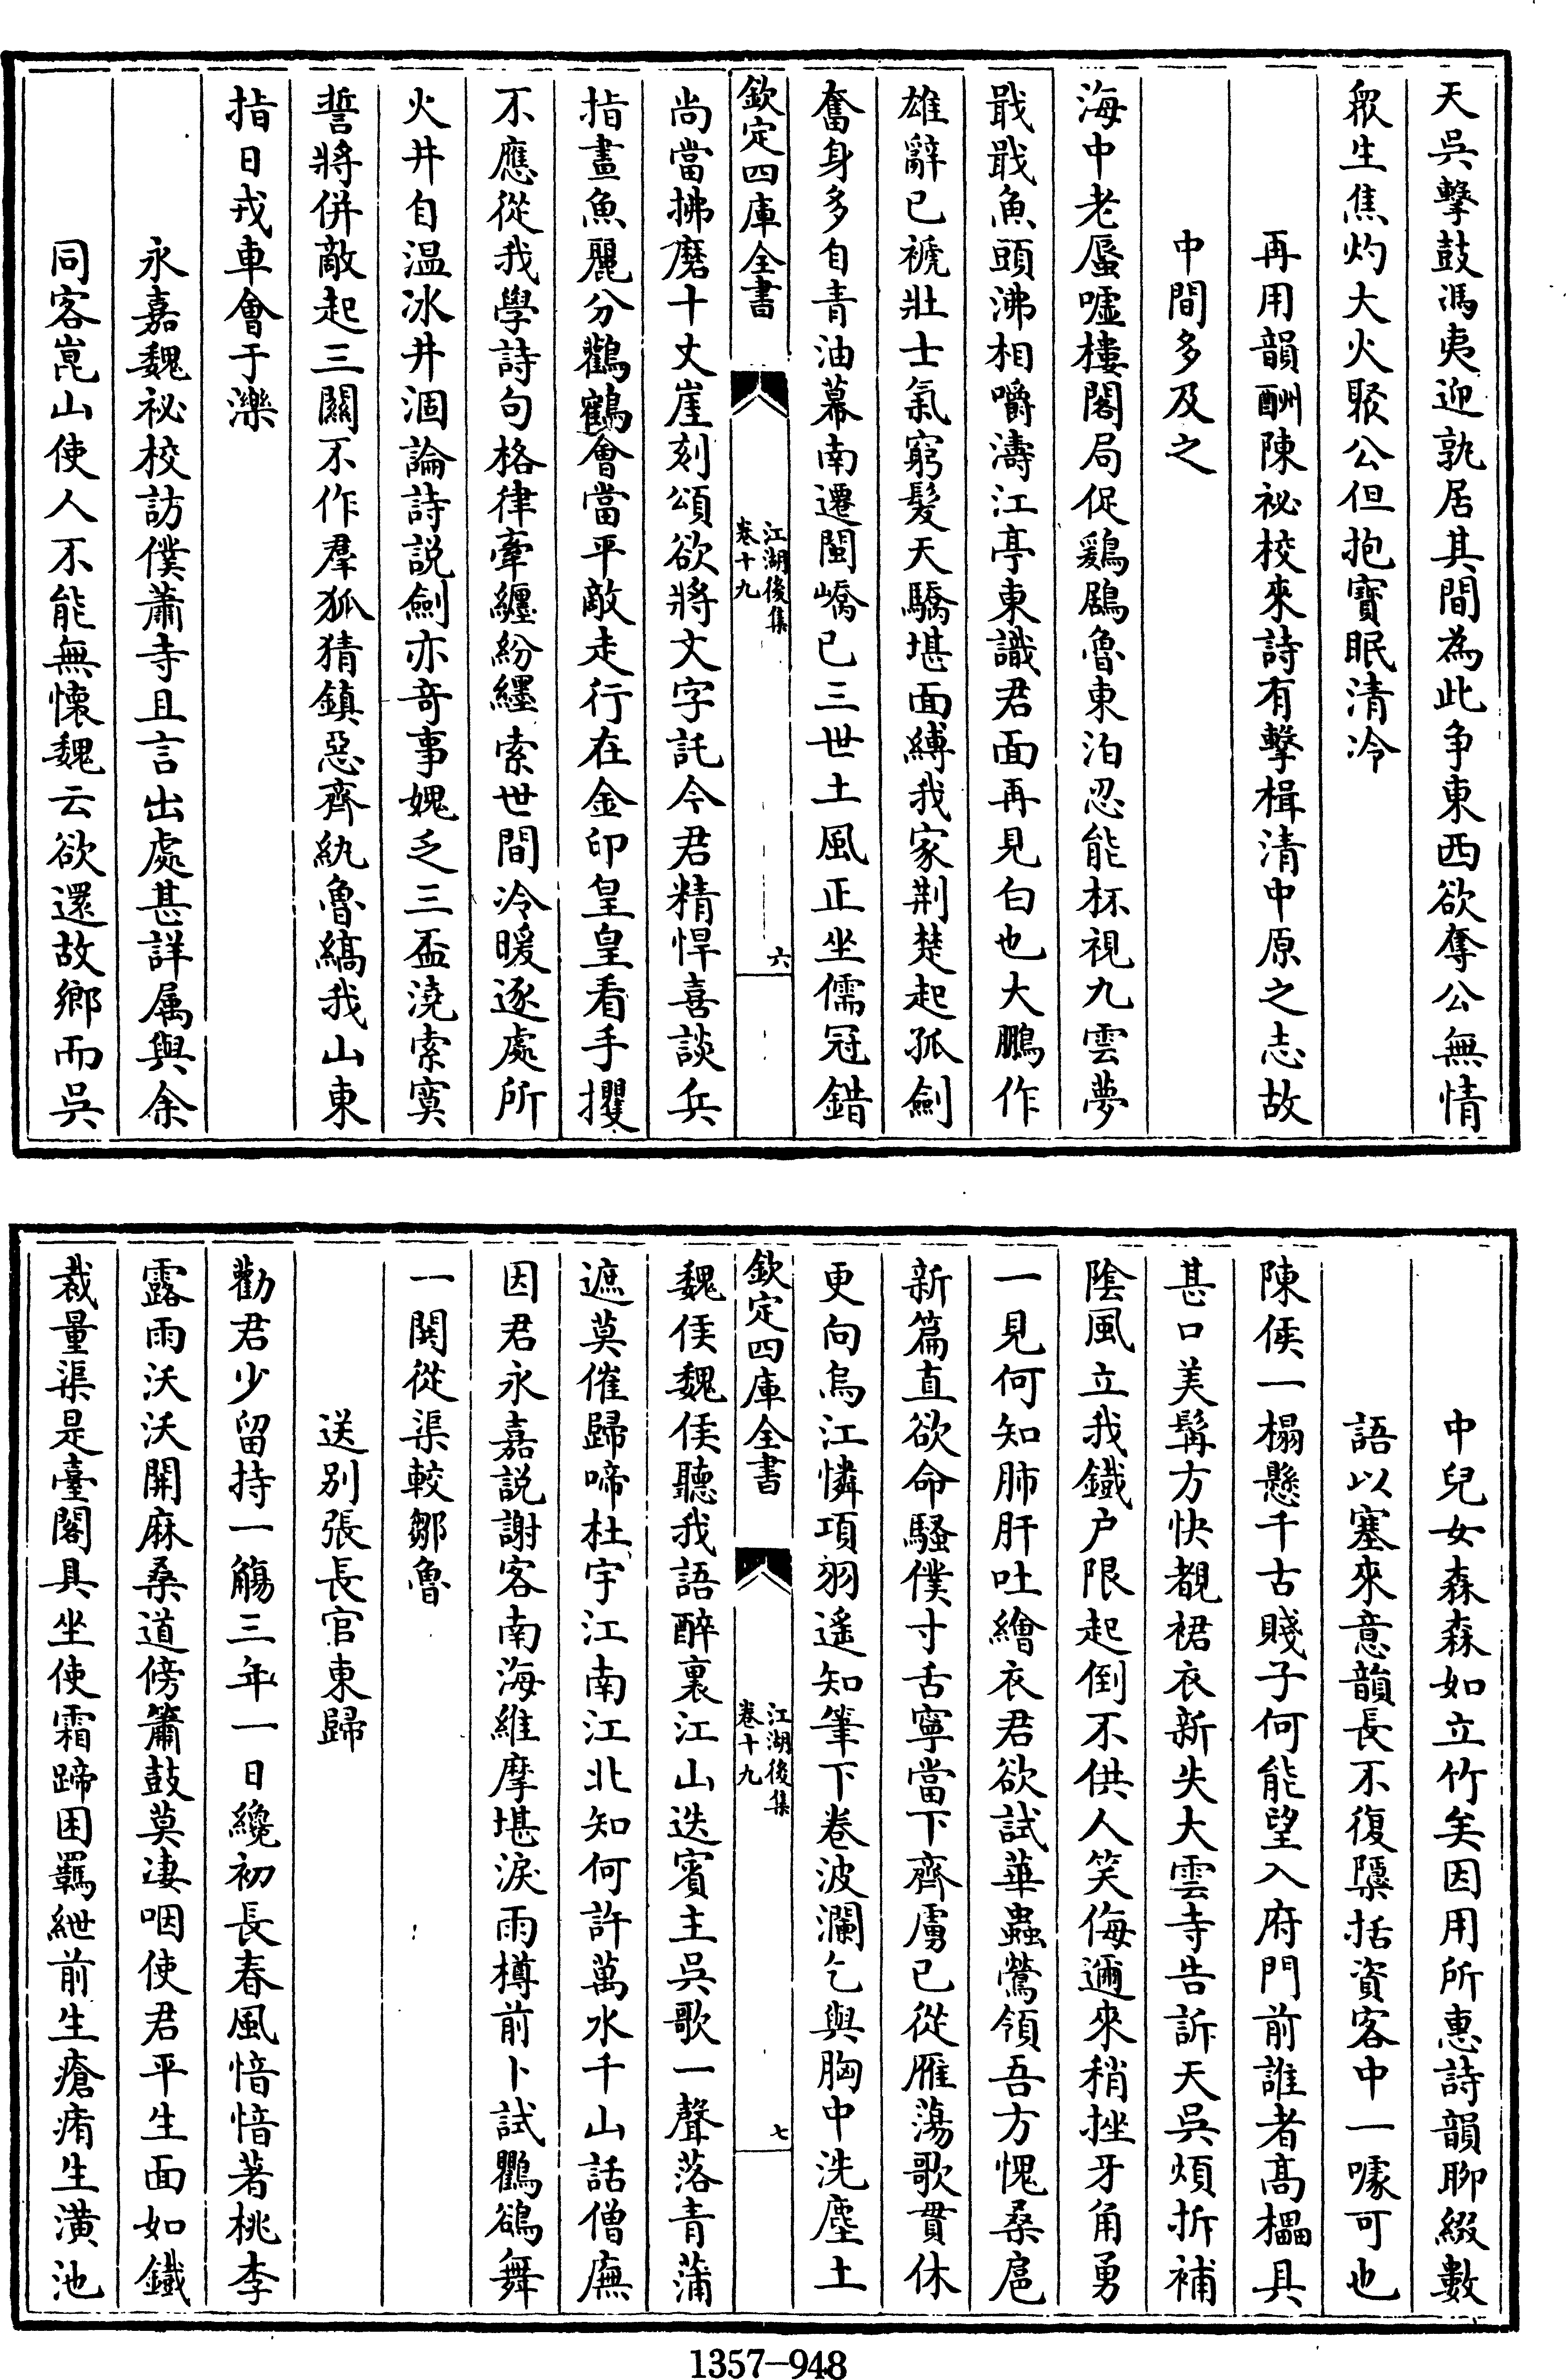 天吳擊鼓馮夷迎孰居其間為此争東西欲奪公無情
衆生焦灼大火聚公但抱寳眠清冷
再用韻酬陳祕校來詩有擊楫清中原之志故
中間多及之
海中老蜃嘘樓閣局促鷄鶋魯東泊忍能杯視九雲夢
戢戢魚頭沸相嚼濤江亭東識君面再見白也大鵬作
雄辭已褫壯士氣窮髮天驕堪面縛我家荆楚起孤劍
奮身多自青油幕南遷閩嶠已三世土風正坐儒冠錯
欽定四庫全書
江湖後集
卷十九
六
尚當拂磨十丈崖刻頌欲將文字託今君精悍喜談兵
指畫魚麗分鸛鶴會當平敵走行在金印皇皇看手攫
不應從我學詩句格律牽纏紛纆索世間冷暖逐處所
火井自温冰井涸論詩説劍亦奇事媿乏三盃澆索寞
誓將併敵起三關不作羣狐猜鎮惡齊紈魯縞我山東
指日戎車會于濼
永嘉魏祕校訪僕蕭寺且言出處甚詳属與余
同客崑山使人不能無懷魏云欲還故鄉而吳
中兒女森森如立竹矣因用所惠詩韻聊綴數
語以塞來意韻長不復檃括資客中一噱可也
陳侯一榻懸千古賤子何能望入府門前誰者高櫑具
甚口美髯方快覩裾衣新失大雲寺告訴天吳煩拆補
陰風立我鐵户限起倒不供人笑侮邇來稍挫牙角勇
一見何知肺肝吐繪衣君欲試華蟲鶯領吾方愧桑扈
新篇直欲命騷僕寸舌寧當下齊虜已從雁蕩歌貫休
更向烏江憐項羽遥知筆下卷波瀾乞與胸中洗塵土
欽定四庫全書
江湖後集
卷十九
七
魏侯魏侯聽我語醉裏江山迭賓主吳歌一聲落青蒲
遮莫催歸啼杜宇江南江北知何許萬水千山話僧廡
因君永嘉説謝客南海維摩堪淚雨樽前卜試鸜鵒舞
一関從渠較鄒魯
送别張長官東歸
勸君少留持一觴三年一日纔初長春風愔愔著桃李
露雨沃沃開麻桑道傍簫鼓莫凄咽使君平生面如鐵
裁量渠是臺閣具坐使霜蹄困羈紲前生瘡痏生潢池
1357-948